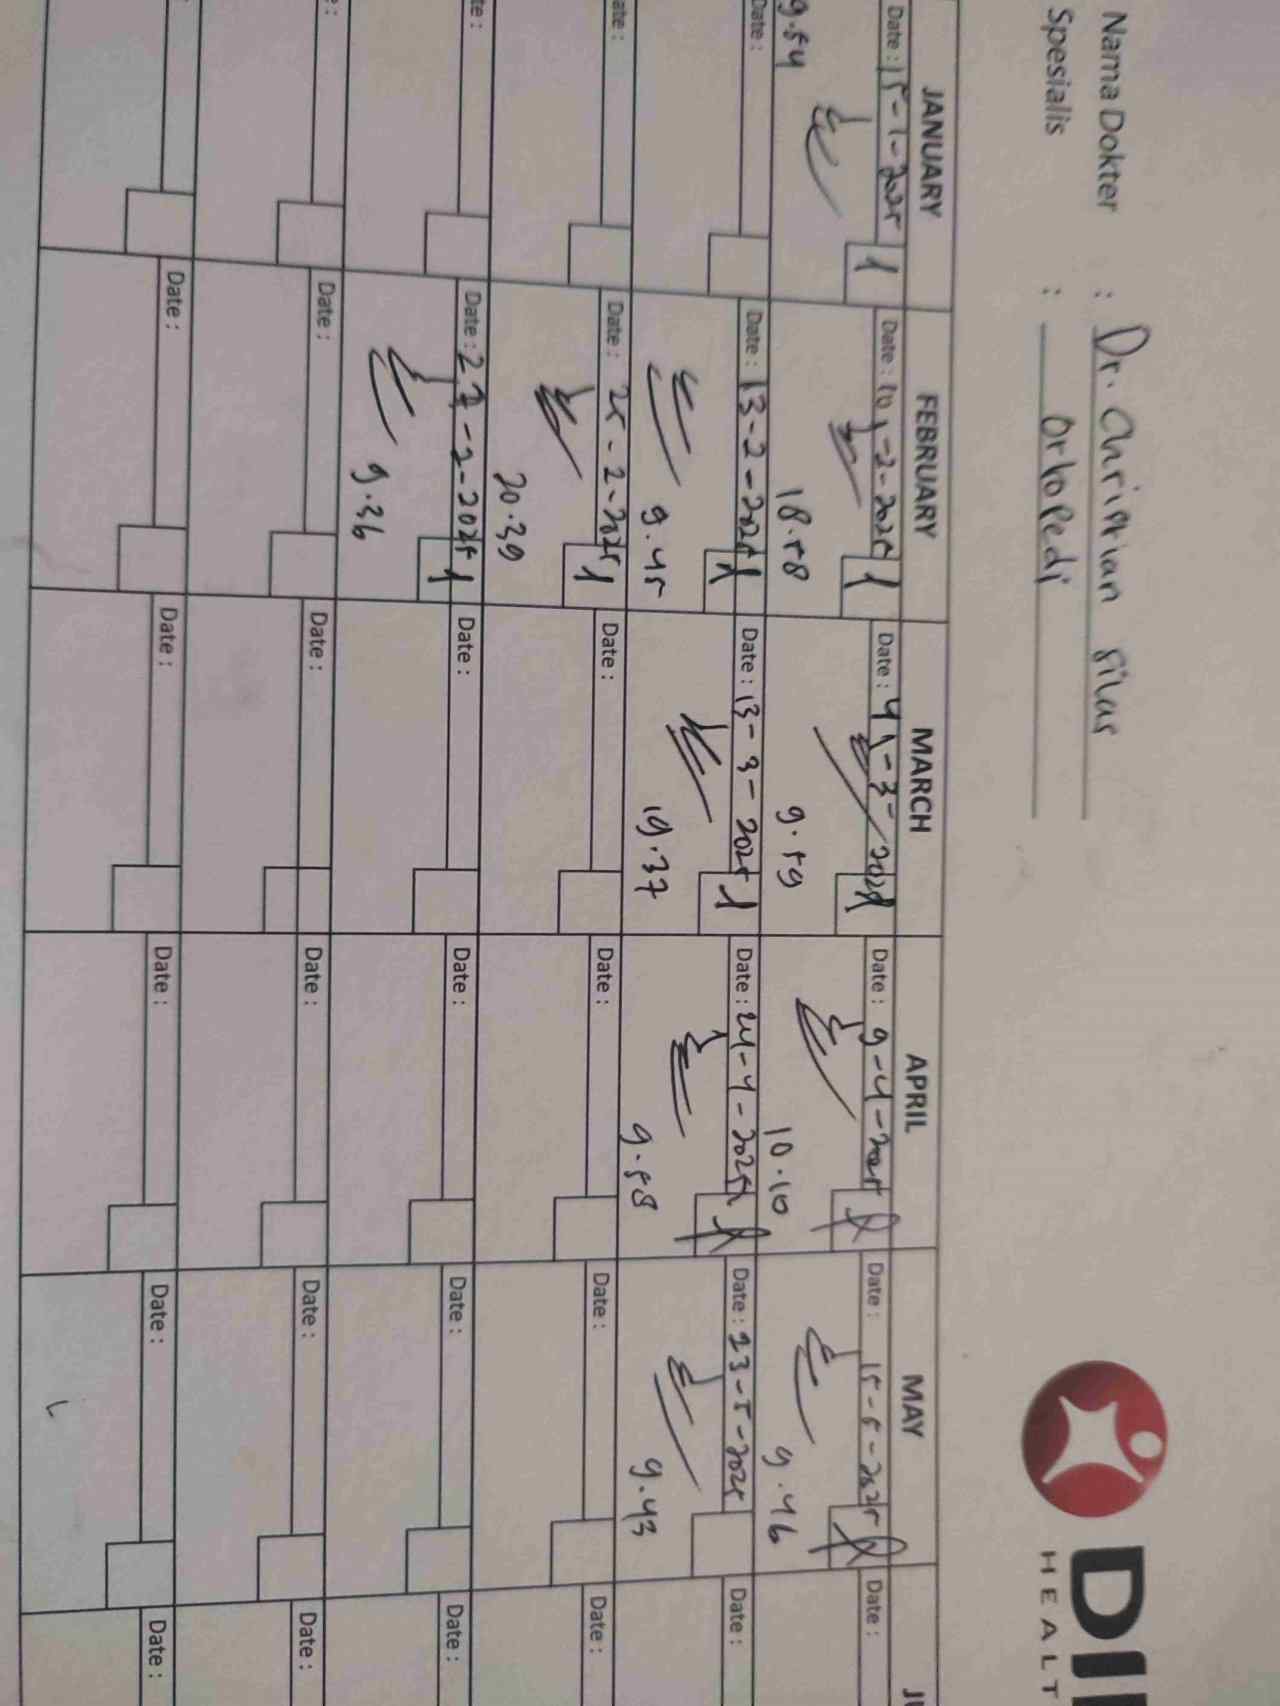 Nama Dokter : Dr. Christian silas
Spesialis : Ortopedi
DI
HEALT
JANUARY FEBRUARY MARCH APRIL MAY
Date : 15-1-2025 1 Date : 10-2-2025 1 Date : 4-3-2025 1 Date : 9-4-2025 Date : 15-5-2025 Date :
9.54 18.58 9.59 10.10 9.46
Date : Date : 13-2-2025 1 Date : 13-3-2025 1 Date : 24-4-2025 Date : 23-5-2025 Date :
9.45 19.37 9.58 9.43
ate : Date : 25-2-2025 1 Date : Date : Date : Date :
20.39
te : Date : 27-2-2025 1 Date : Date : Date : Date :
9.36
e : Date : Date : Date : Date : Date :
Date : Date : Date : Date : Date :